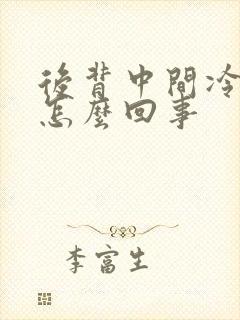 後背中間冷
怎麼回事
李富生